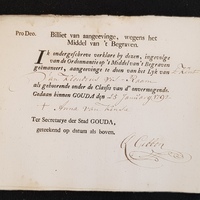 Pro Deo. Billiet van aangeevinge, wegens het
Middel van 't Begraven.
IK ondergeschreve verklare by dezen, ingevolge
van de Ordonnantie op 't Middel van 't Begraven
geëmaneert, aangevinge te doen van het Lyk van
als gehoorende onder de Classis van d' onvermogende.
Gedaan binnen GOUDA den 23 January
Anna van
Ter Secretarye der Stad GOUDA,
geteekend op datum als boven.